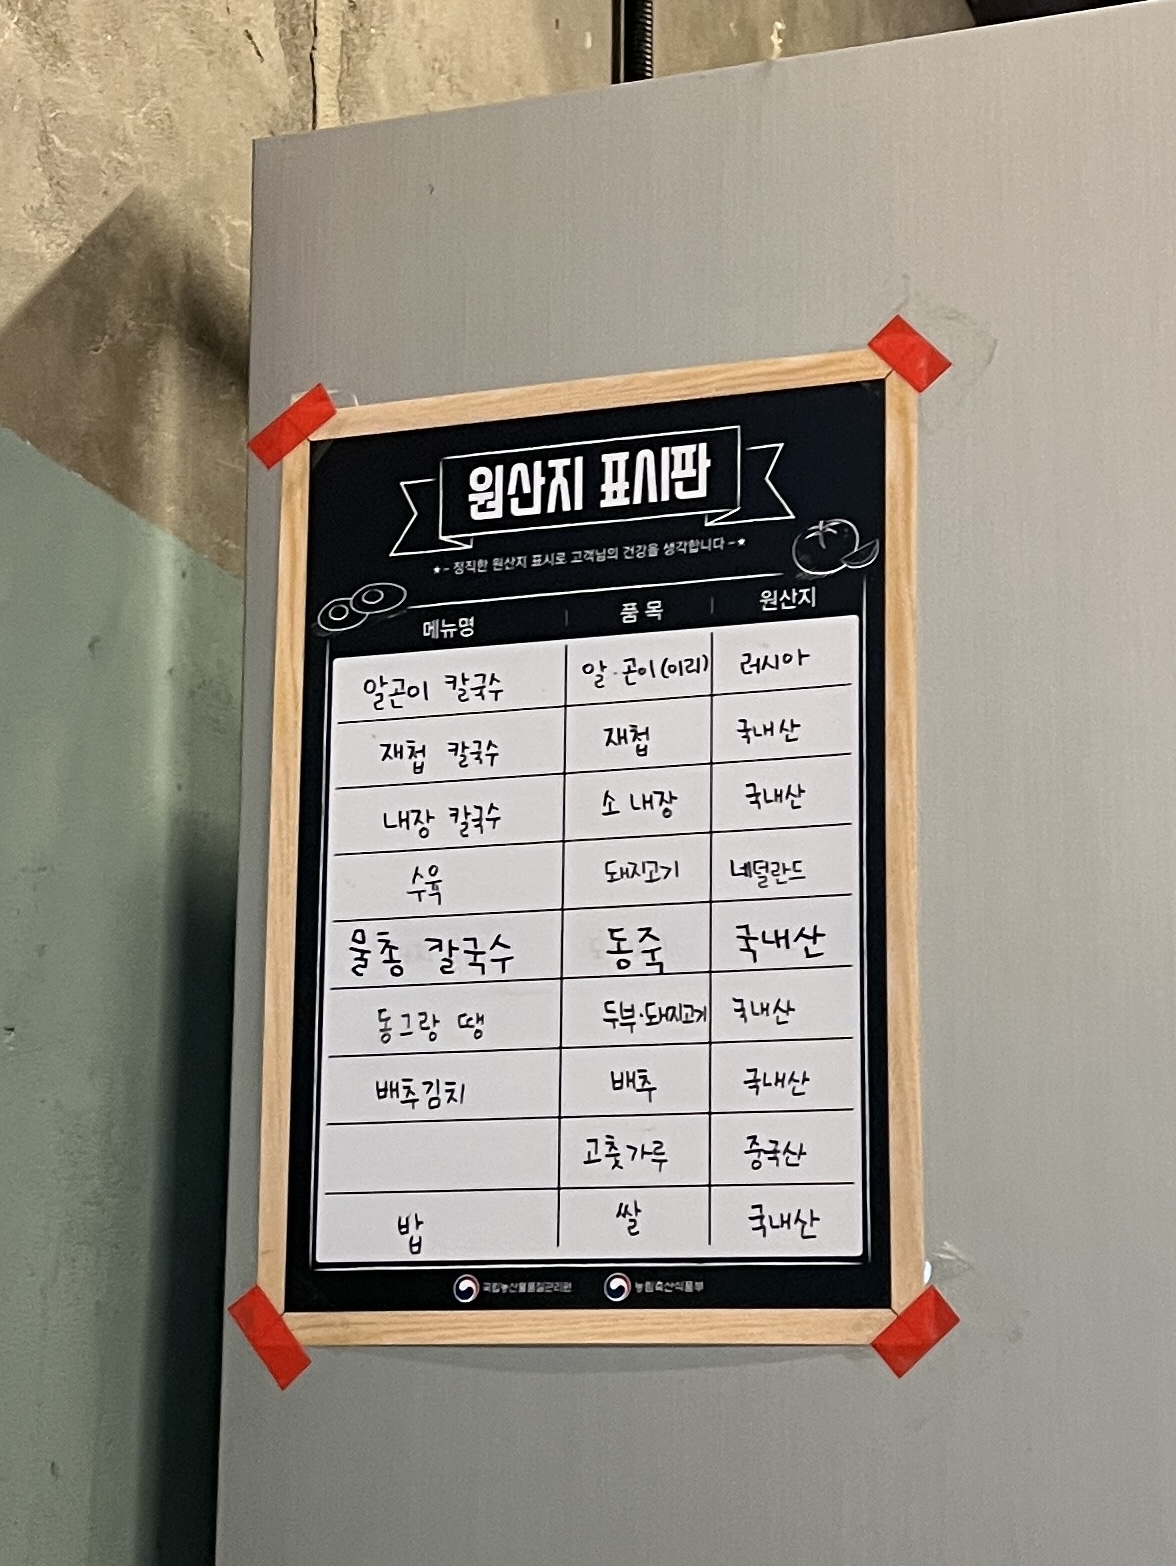 원산지 표시판
★- 정직한 원산지 표시로 고객님의 건강을 생각합니다 -★
메뉴명 | 품목 | 원산지
알곤이 칼국수 알·곤이(이리) 러시아
재첩 칼국수 재첩 국내산
내장 칼국수 소 내장 국내산
수육 돼지고기 네덜란드
물총 칼국수 동죽 국내산
동그랑 땡 두부·돼지고기 국내산
배추김치 배추 국내산
고춧가루 중국산
밥 쌀 국내산
국립농산물품질관리원 농림축산식품부